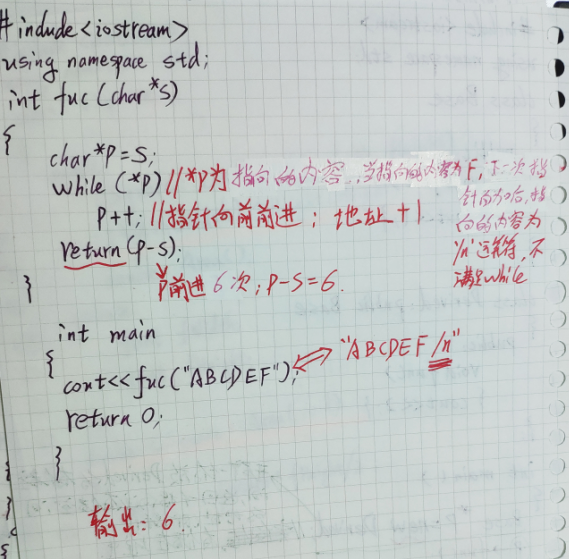 #include<iostream>
using namespace std;
int fuc(char*s)
{
char*p=s;
while(*p) //*p为指向的内容,当指向的内容为F,下一次指
针向加后,指
向的内容为
'/n'运转符,不
满足while
p++; //指针向前前进; 地址+1
return(p-s);
p前进6次;p-s=6.
}
int main
{
cout<<fuc("ABCDEF"); "ABCDEF/n"
return 0;
}
}
输出:6